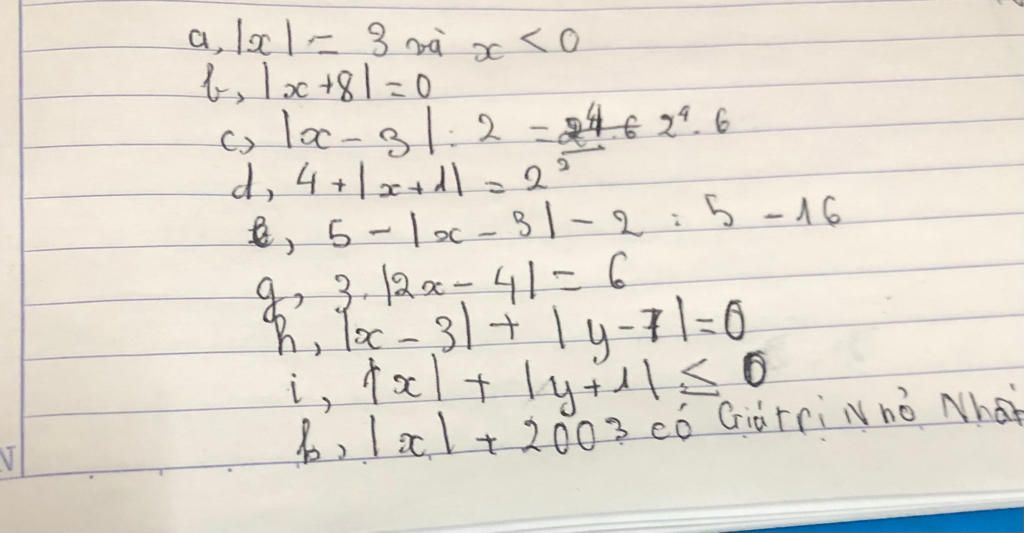 a, |x| = 3 và x < 0
b, |x+8| = 0
c, |x - 3| : 2 = 24 . 6 2⁴ . 6
d, 4 + |x+1| = 2³
e, 5 - |x - 3| - 2 = 5 - 16
g, 3. |2x - 4| = 6
h, |x - 3| + |y-7| = 0
i, |x| + |y+1| ≤ 0
k, |x| + 2003 có Giá trị Nhỏ Nhất